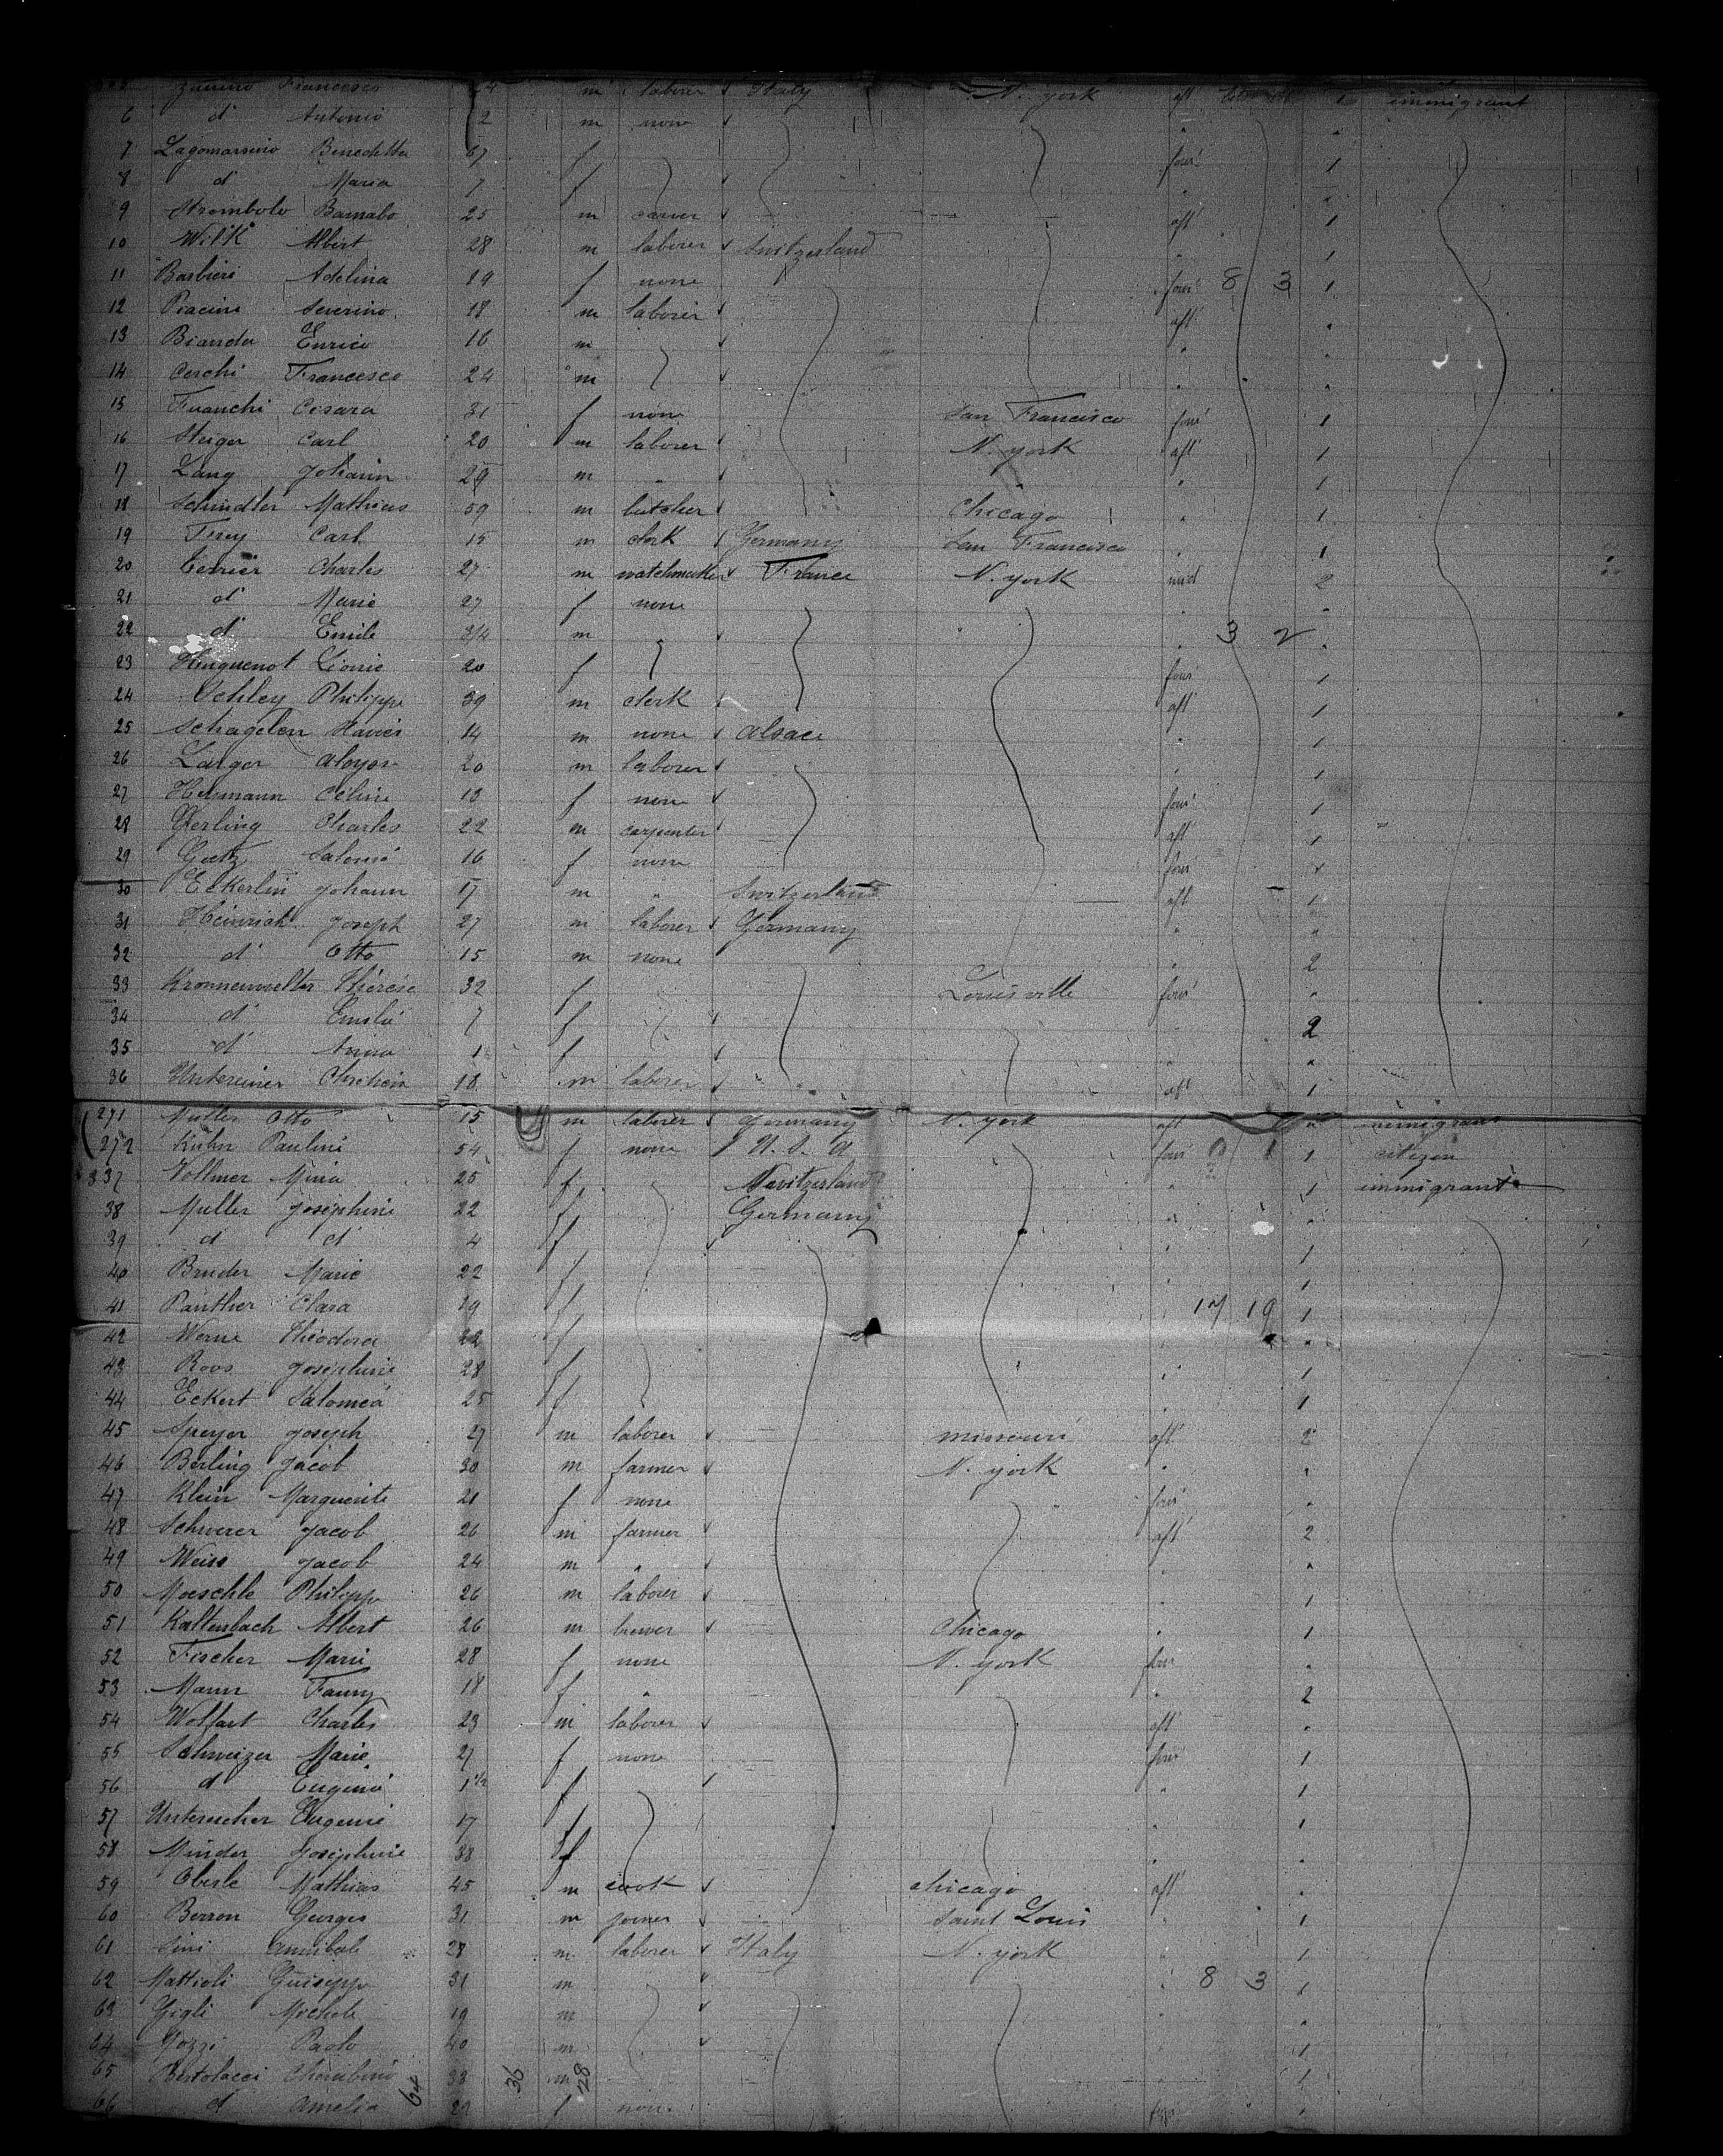 Francesco 24 m laborer Italy N. york aft 1 immigrant
6 d° Antonio 2 m none "
7 Lagomarsino Benedetta 67 f for' 1
8 d° Maria 7 f " "
9 Strombolo Barnabo 25 m carver aft' 1
10 Wilk Albert 28 m laborer Switzerland " 1
11 Barbieri Adelina 19 f none for' 8 3 1
12 Piacini Severino 18 m laborer aft' "
13 Bianda Enrico 16 m " "
14 Cerchi Francesco 24 m " "
15 Cesara 31 f none San Francisco for' 1
16 Steiger Carl 20 m laborer N. york aft' 1
17 Lang Johann 29 m " " " 1
18 Schindler Mathias 59 m butcher Chicago " 1
19 Frey Carl 15 m clerk Germany San Francisco " 1
20 Charles 27 m watchmaker France N. york mid 2
21 d° Marie 27 f none " "
22 d° Emile 3/4 m " 3 2 "
23 Huguenot Léonie 20 f for' 1
24 Ochley Philippe 39 m clerk aft' 1
25 Schagelen Xavier 14 m none Alsace " 1
26 Larger Aloyse 20 m laborer " 1
27 Hermann Céline 13 f none for' 1
28 Gerling Charles 22 m carpenter aft' 1
29 Goetz Salomé 16 f none for' 1
30 Eckerlin Johann 17 m " Switzerland aft' 1
31 Heinrich Joseph 27 m laborer Germany " "
32 d° Otto 15 m none " 2
33 Thérèse 32 f Louisville for' "
34 d° Emilie 7 f " 2
35 d° Anna 1 f " "
36 Untereiner Chrétien 18 m laborer aft' 1
271 Muller Otto 15 m laborer Germany N. york aft' " immigrant
272 Kühn Pauline 54 f none U. S. A for' 1 1 citizen
37 Vollmer Mina 25 f Switzerland " 1 immigrant
38 Muller Joséphine 22 f Germany " "
39 d° d° 4 f " 1
40 Bruder Marie 22 f " 1
41 Panther Clara 19 f 17 19 1
42 Werne Théodora 22 f "
43 Roos Joséphine 28 f " 1
44 Eckert Saloméa 25 f " 1
45 Speyer Joseph 27 m laborer missouri aft' 2
46 Berling Jacob 30 m farmer N. york " "
47 Klein Marguerite 21 f none for' "
48 Scherrer Jacob 26 m farmer aft' 2
49 Weiss Jacob 24 m " " "
50 Moeschle Philippe 26 m laborer " 1
51 Kaltenbach Albert 26 m brewer Chicago " 1
52 Fischer Marie 28 f none N. york for' "
53 Mann Fanny 18 f " " 2
54 Wolfart Charles 23 m laborer aft' "
55 Schweizer Marie 27 f none for' 1
56 d° Eugénie 1 1/2 f " 1
57 Eugénie 17 f " 1
58 Minder Joséphine 38 f " "
59 Oberle Mathias 45 m cook chicago aft' "
60 Berron Georges 31 m joiner Saint Louis " 1
61 Sini Annibale 28 m laborer Italy N. york " 1
62 Mattioli Guiseppe 31 m " 8 3 1
63 Gigli Michele 19 m " "
64 Paolo 40 m " 1
65 Bertolacci Cherubino 38 m 1
66 d° Amelia 29 f none for' "
64 36 28